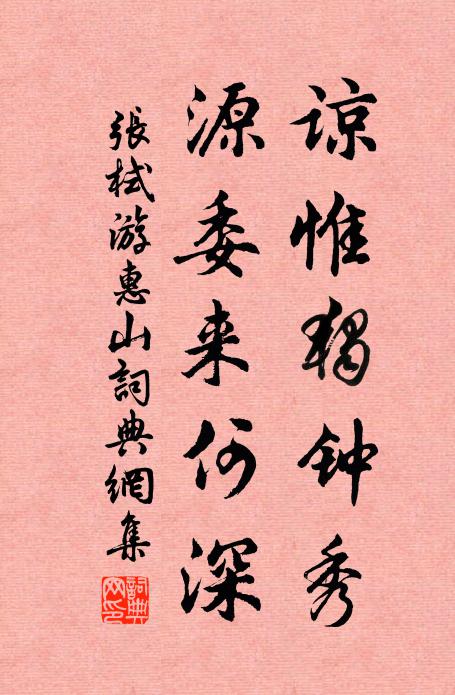 谅惟独钟秀
源委来何深
張栻游惠山詞典網集
詞典网印